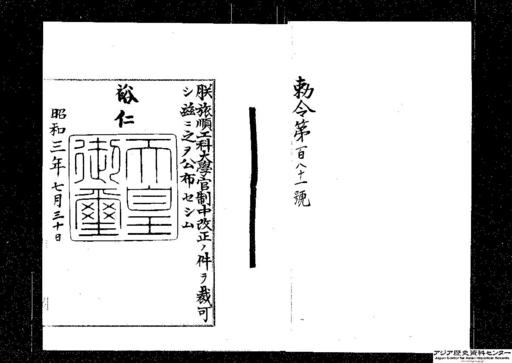 勅令第百八十一號
朕旅順工科大學官制中改正ノ件ヲ裁可
シ茲ニ之ヲ公布セシム
裕仁
天皇
御璽
昭和三年七月三十日
アジア歴史資料センター
Japan Center for Asian Historical Records